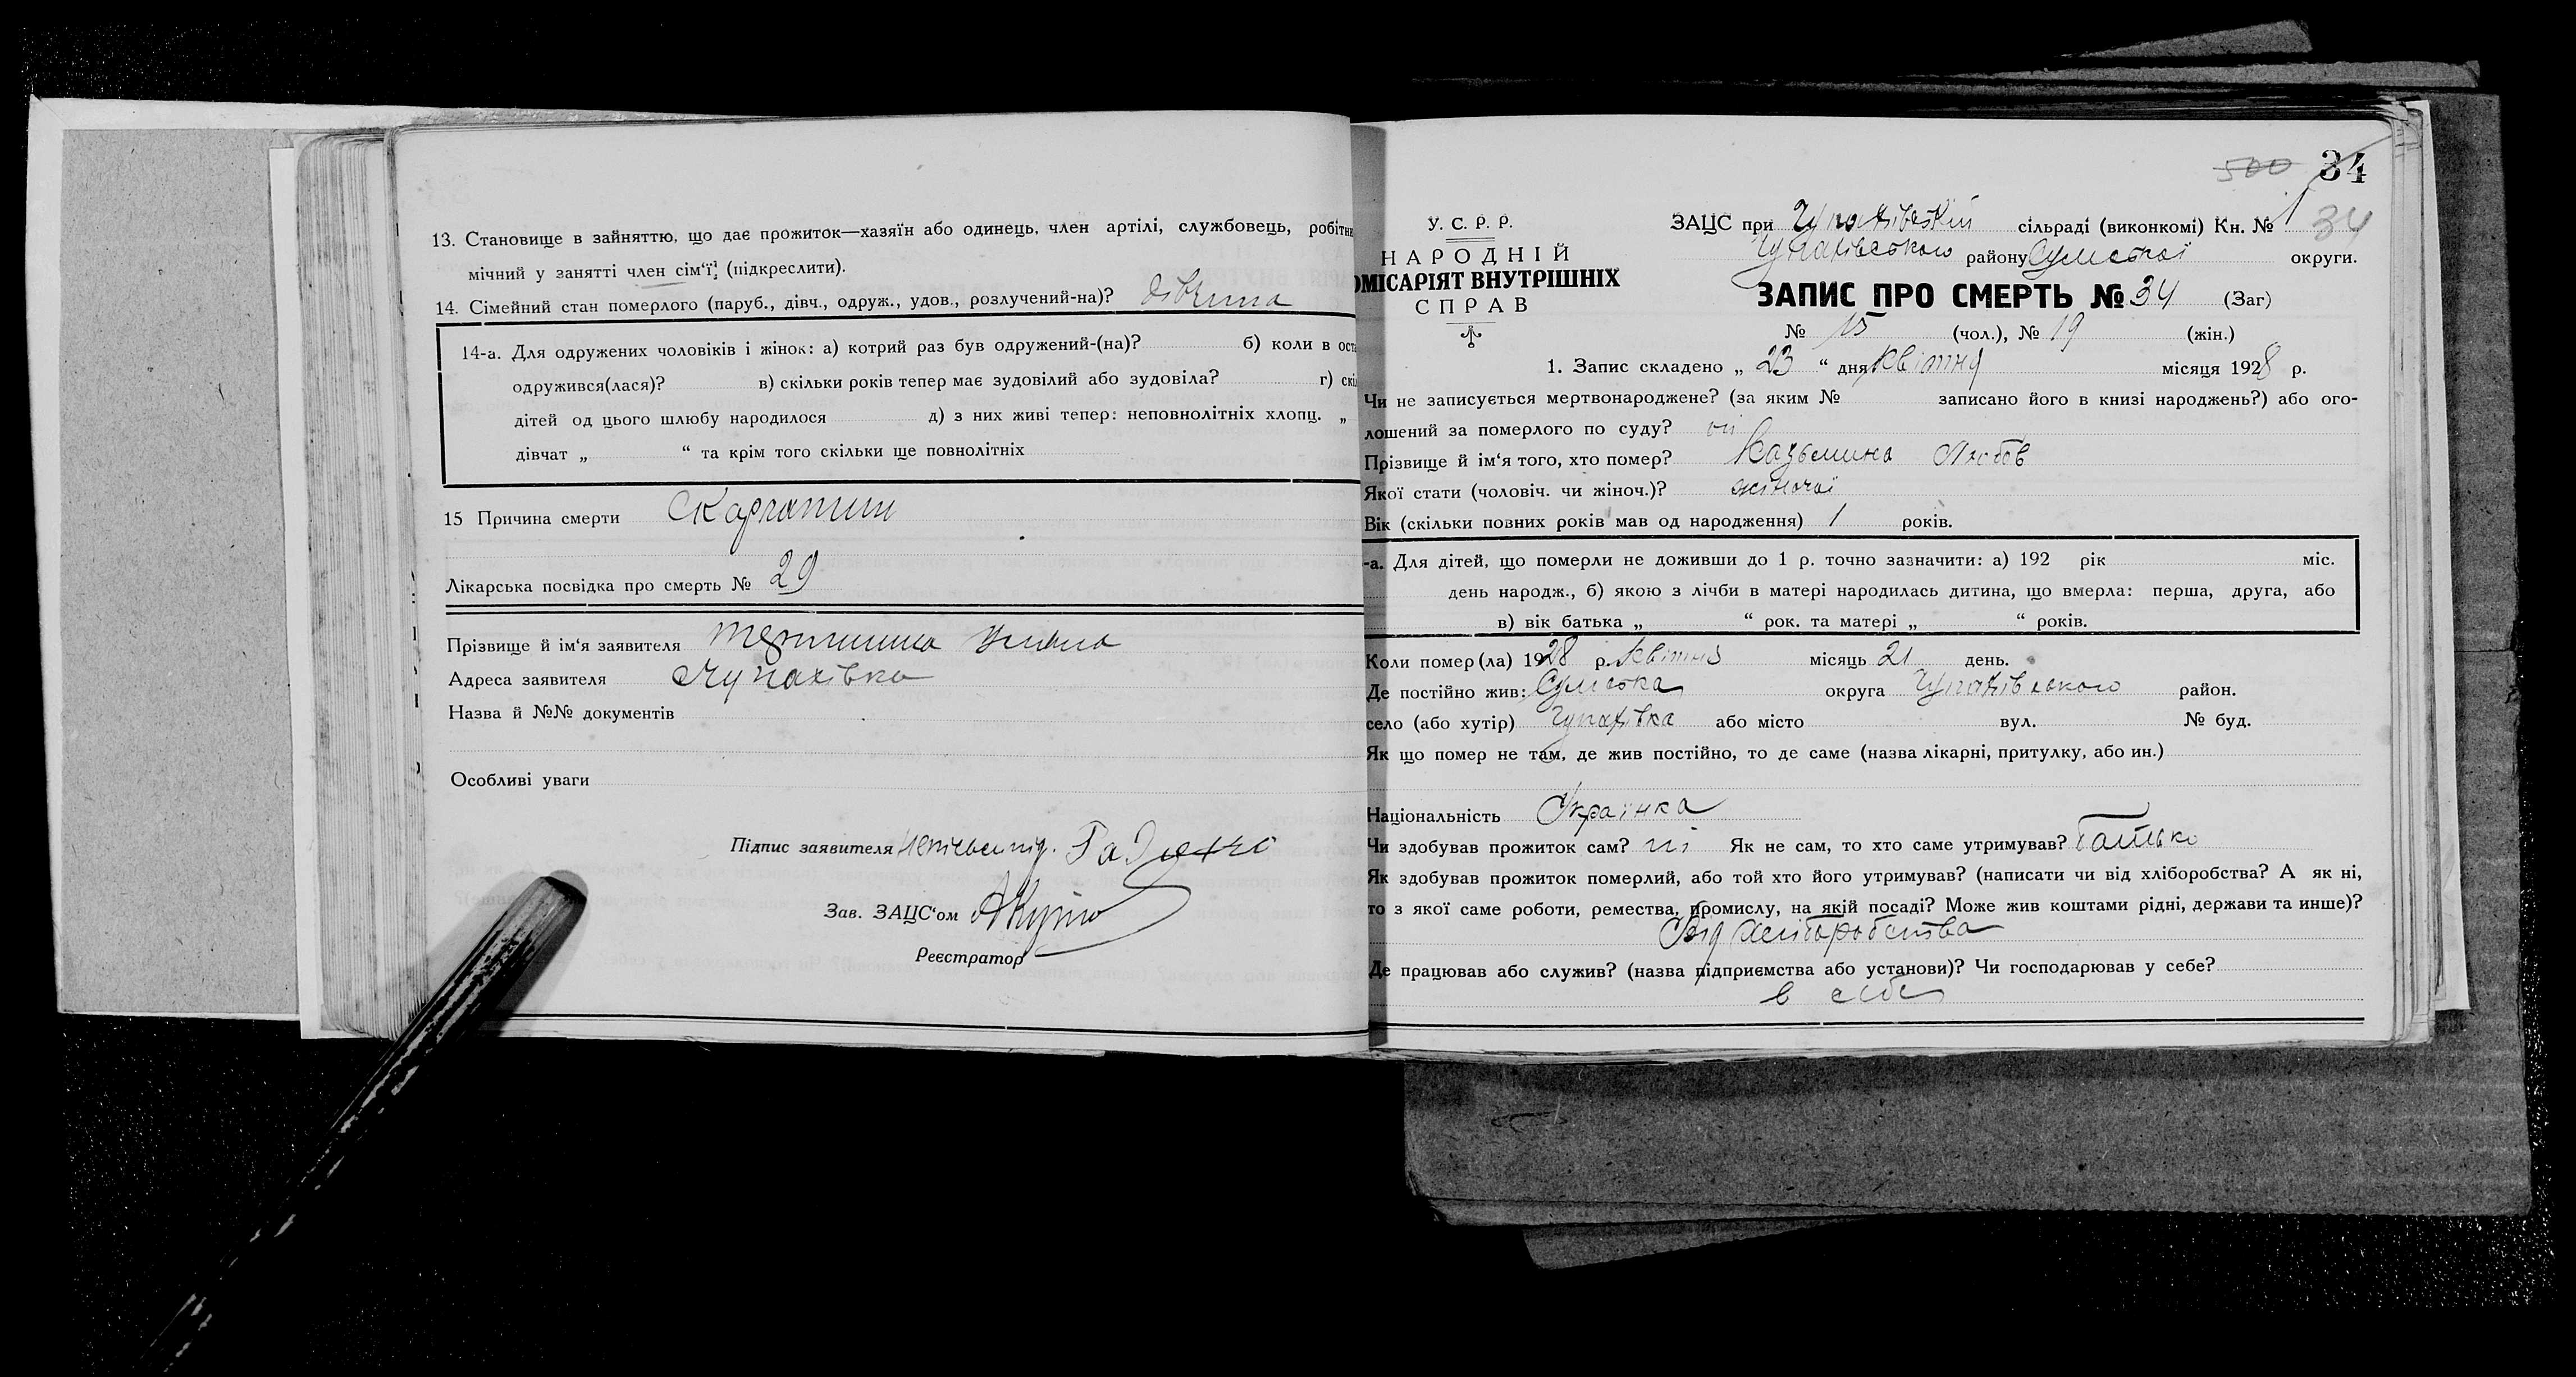 13. Становище в зайняттю, що дає прожиток—хазяїн або одинець, член артілі, службовець, робітни
мічний у занятті член сім‘ї, (підкреслити).
14. Сімейний стан померлого (паруб., дівч., одруж., удов., розлучений-на)? дівчина
14-а. Для одружених чоловіків і жінок: а) котрий раз був одружений-(на)? б) коли в оста
одружився(лася)? в) скільки років тепер має зудовілий або зудовіла? г) скі
дітей од цього шлюбу народилося д) з них живі тепер: неповнолітніх хлопц. „
дівчат „ “ та крім того скільки ще повнолітніх
15 Причина смерти Скарлатин
Лікарська посвідка про смерть № 29
Прізвище й ім‘я заявителя
Адреса заявителя Чупахівка
Назва й №№ документів
Особливі уваги
Підпис заявителя
Зав. ЗАЦС‘ом
Реєстратор
500 34
У. С. Р. Р.
НАРОДНІЙ
ОМІСАРІЯТ ВНУТРІШНІХ
СПРАВ
ЗАЦС при Чупахівській сільраді (виконкомі) Кн. № 1 34
Чупахівського району Сумської округи.
ЗАПИС ПРО СМЕРТЬ № 34 (Заг)
№ 15 (чол.), № 19 (жін.)
1. Запис складено „ 23 “ дня Квітня місяця 1928 р.
Чи не записується мертвонароджене? (за яким № записано його в книзі народжень?) або ого-
лошений за померлого по суду? ні
Прізвище й ім‘я того, хто помер? Любов
Якої стати (чоловіч. чи жіноч.)? жіночої
Вік (скільки повних років мав од народження) 1 років.
-а. Для дітей, що померли не доживши до 1 р. точно зазначити: а) 192 рік міс.
день народж., б) якою з лічби в матері народилась дитина, що вмерла: перша, друга, або
в) вік батька „ “ рок. та матері „ “ років.
Коли помер (ла) 1928 р. Квітня місяць 21 день.
Де постійно жив: Сумська округа Чупахівського район.
село (або хутір) Чупахівка або місто вул. № буд.
Як що помер не там, де жив постійно, то де саме (назва лікарні, притулку, або ин.)
Національність Українка
Чи здобував прожиток сам? ні Як не сам, то хто саме утримував? Батько
Як здобував прожиток померлий, або той хто його утримував? (написати чи від хліборобства? А як ні,
то з якої саме роботи, ремества, промислу, на якій посаді? Може жив коштами рідні, держави та инше)?
Від хліборобства
Де працював або служив? (назва підприємства або установи)? Чи господарював у себе?
в себе